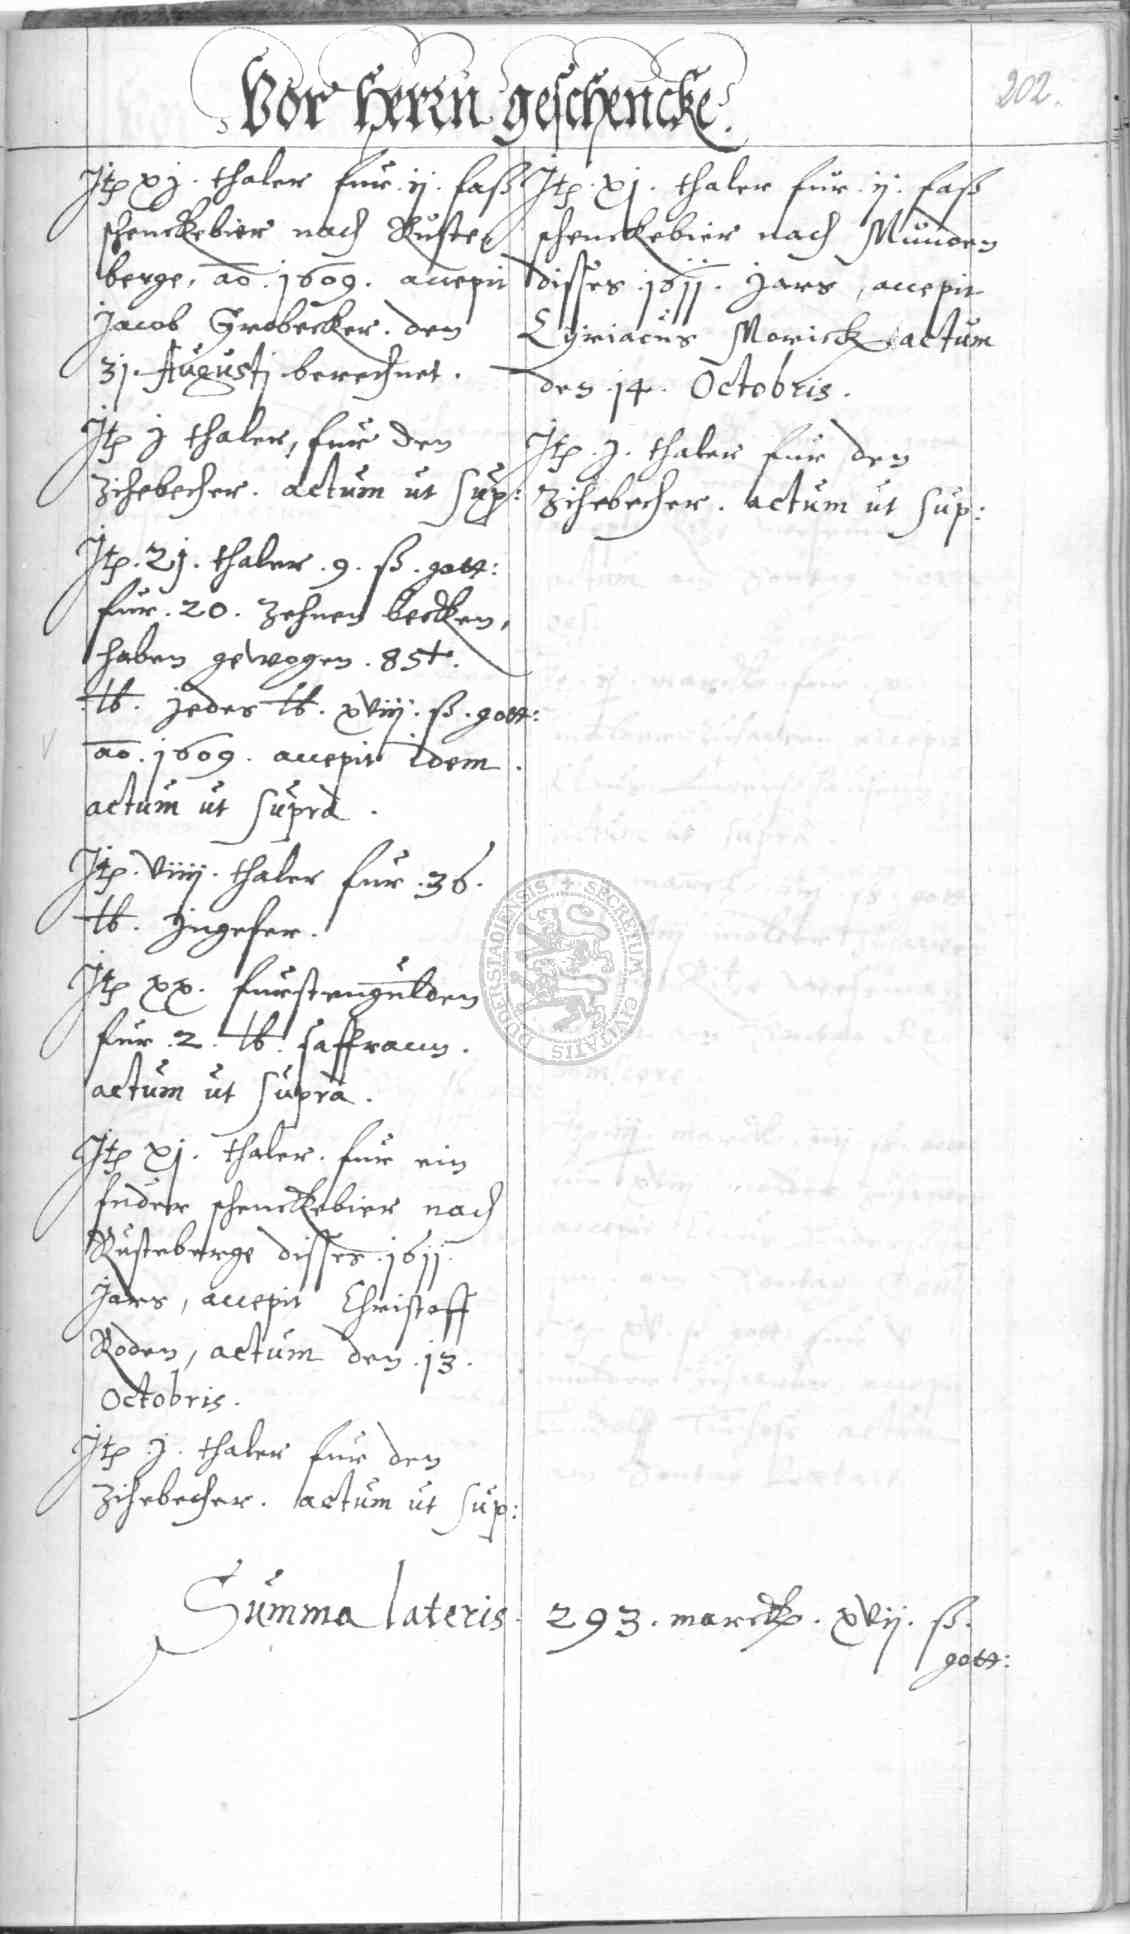 Vor Herrn geschencke.
202.
Itp xj. thaler fur .ij. faß
schenckebier nach Ruste
berge, ao. 1609. accepit
Jacob Grobecker. den
31. Augustj berechnet.
Itp j thaler, fur den
Zihebecher. actum ut sup:
Itp. 21. thaler .9. ß. gott:
fur .20. Zehnen becken,
haben gewogen .85½.
lb. jedes lb. xviij. ß. gott:
ao. 1609. accepit idem.
actum ut supra.
Itp. viiij. thaler fur .36.
lb. Jngefer.
Itp xx. furstengulden
fur .2. lb. saffrann.
actum ut supra.
Itp xj. thaler. fur ein
fuder schenckebier nach
Rusteberge disses .1611.
Jars, accepit Christoff
Roden, actum den .13.
Octobris.
Itp .j. thaler fur den
Zihebecher. actum ut sup:
Itp. xj. thaler fur .ij. faß
schenckebier nach Munden
disses .1611. Jars, accepit
Cyriacus Morick actum
den .14. Octobris.
Itp. j. thaler fur den
Zihebecher. actum ut sup:
Summa lateris. 293. marck. xvij. ß.
gott:
SECRETUM CIVITATIS DUDERSTADIENSIS